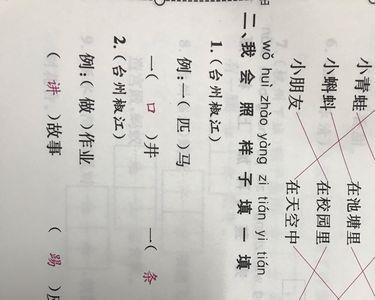 小青蛙 在池塘里
小蝌蚪 在校园里
小朋友 在天空中
wǒ huì zhào yàng zi tián yi tián
二、我会照样子填一填
1.(台州椒江)
例:一(匹)马
一(口)井 一(条
2.(台州椒江)
例:(做)作业
(讲)故事 (踢)